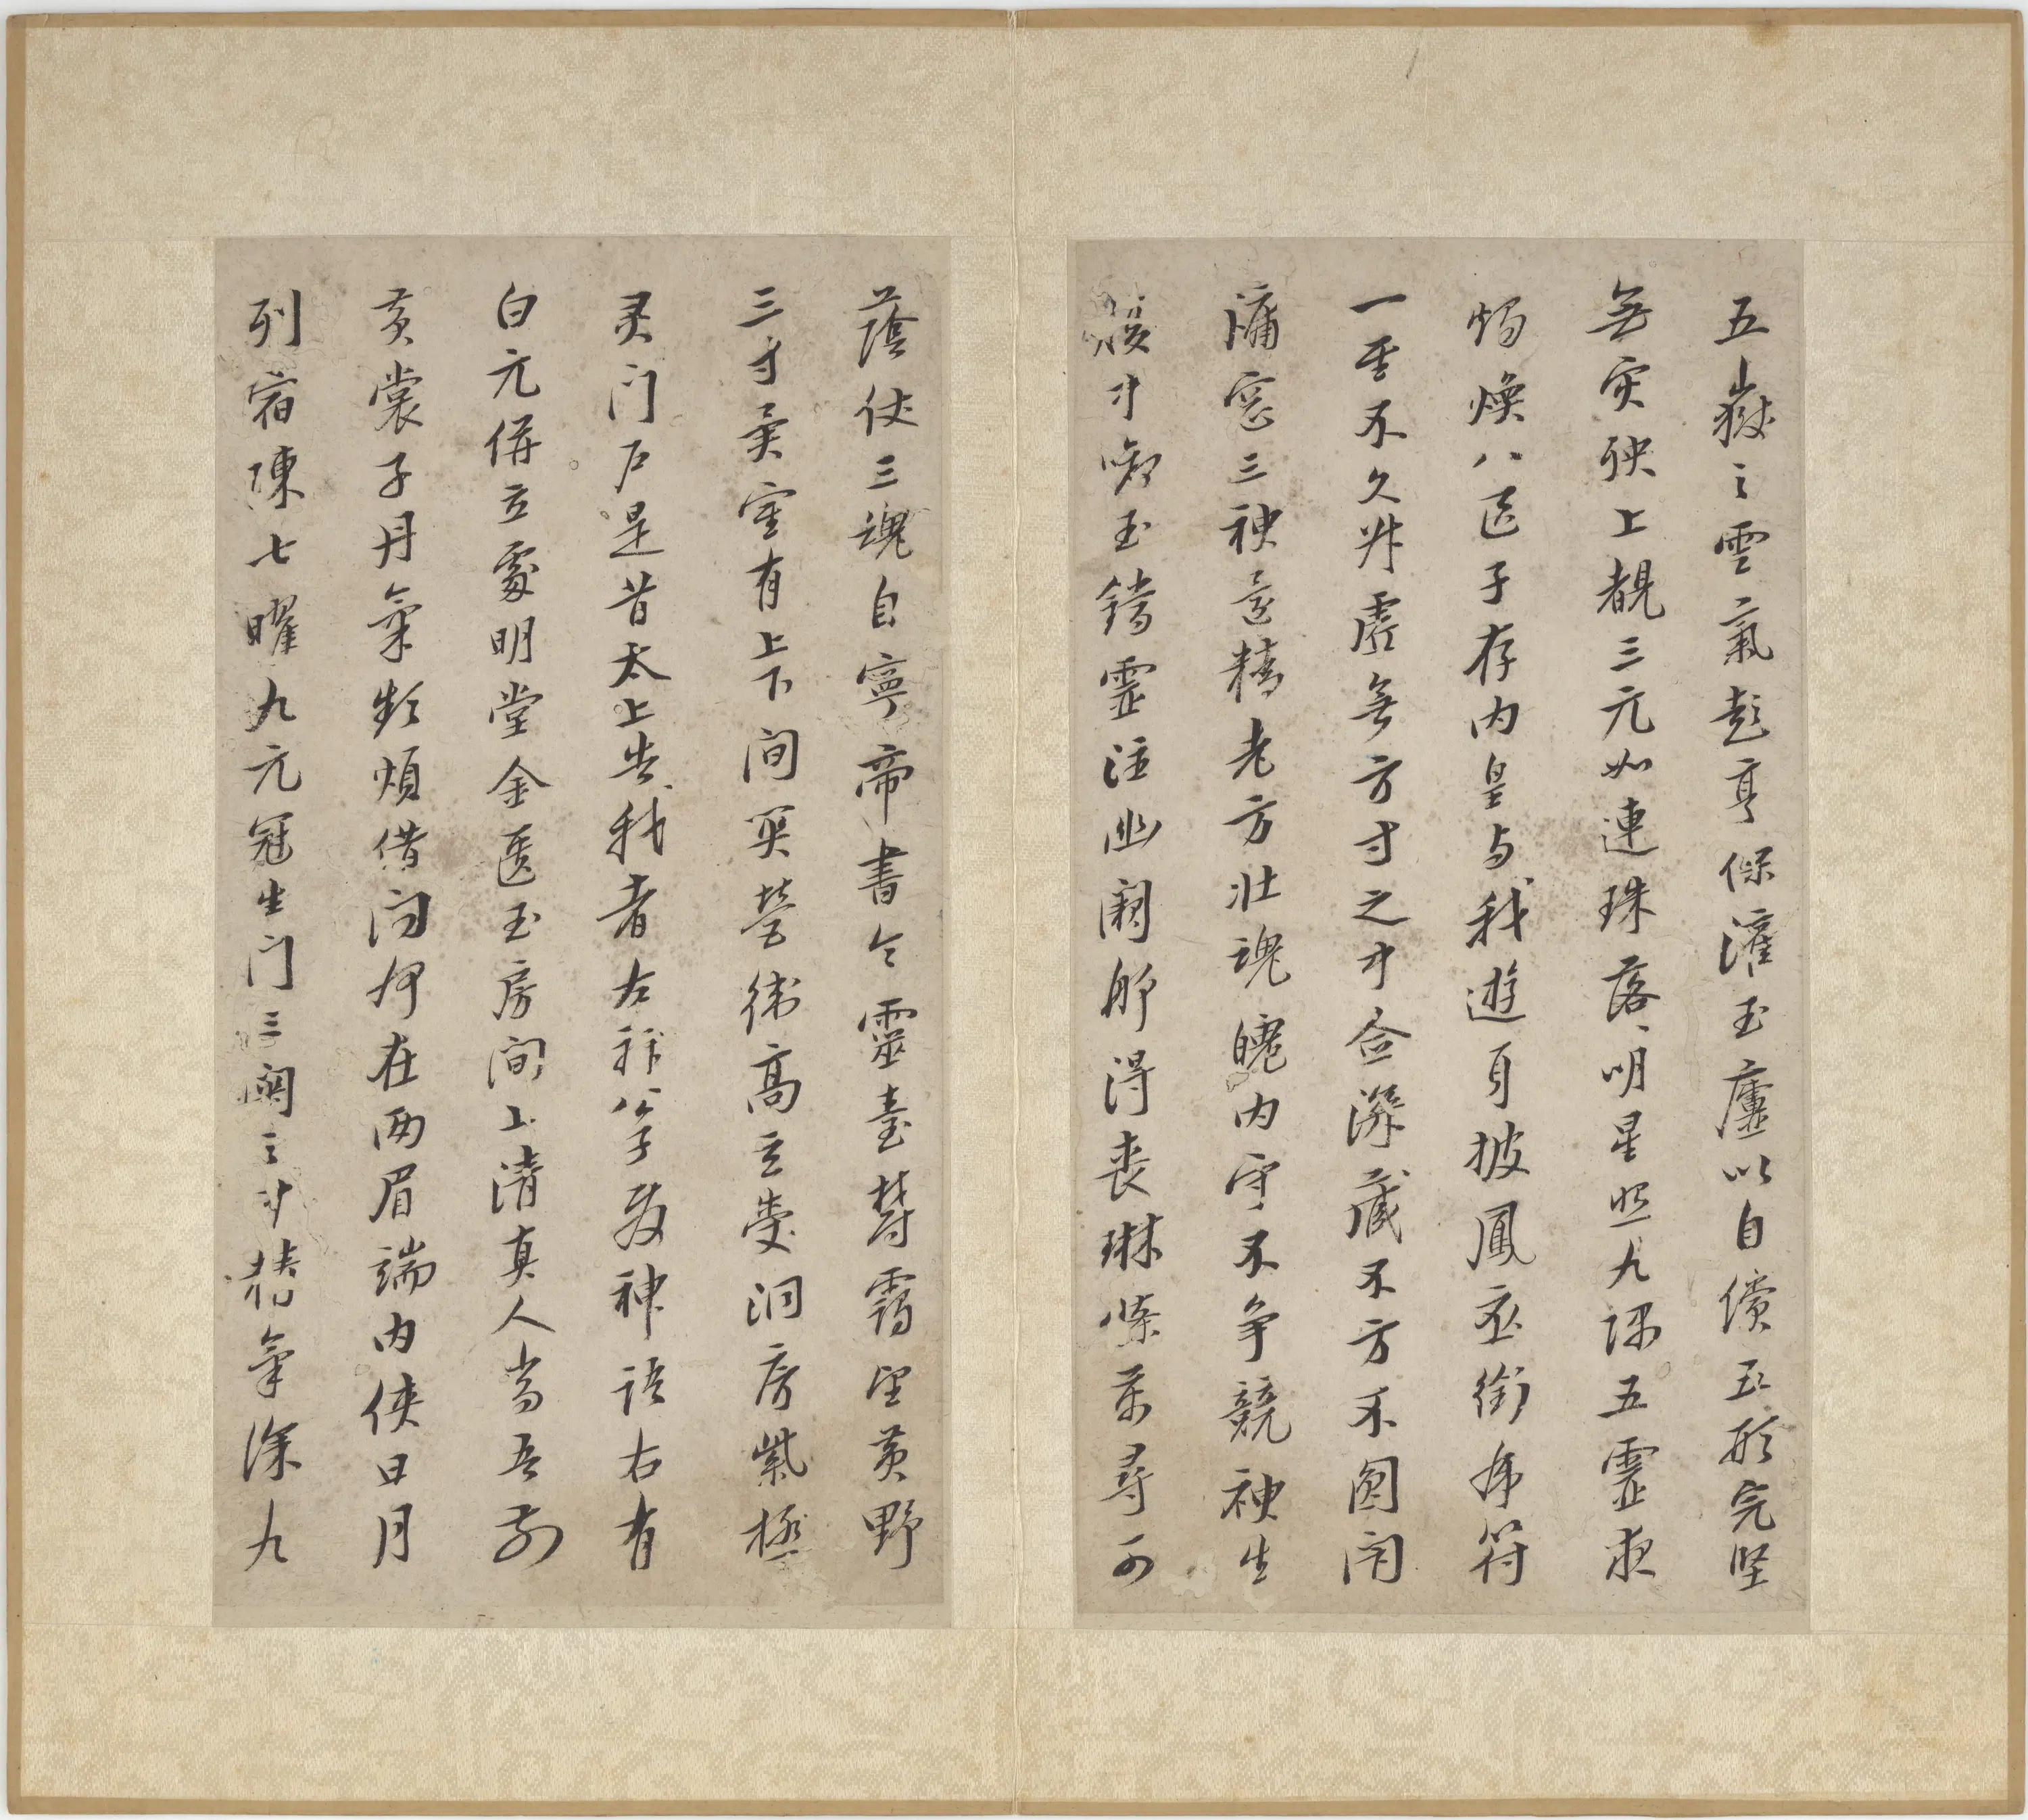 五嶽之雲氣彭亨保灌玉廬以自償五形完堅
無災殃上覩三元如連珠落落明星照九隅五靈夜
燭煥八區子存内皇与我遊身披鳳衣銜虎符
一至不久昇虛無方寸之中念深藏不方不圓閉
牖窓三神還精老方壯魂魄内守不爭競神生
腹中銜玉鐺靈注幽闕那得喪琳條萬尋可
蔭仗三魂自寧帝書命靈臺鬱靄望黃野
三寸異室有上下間關營衛高玄受洞房紫極
灵门户是昔太上告我者左神公子發神語右有
白元併立處明堂金匱玉房間上清真人當吾前
黃裳子丹氣頻煩借问何在兩眉端内俠日月
列宿陳七曜九元冠生门三關之中精氣深九